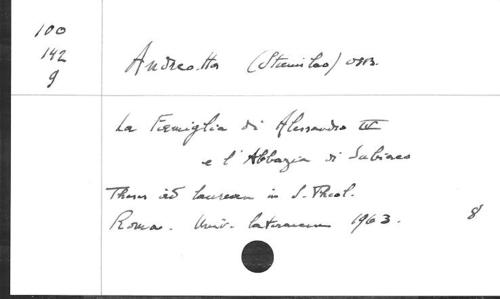 100
142
9
Andreotta (Stanislao) OSB.
La Famiglia di Alessandro IV
e l'Abbazia di Subiaco
Thesis ad lauream in S. Theol.
Roma. Univ. Lateranum 1963.
8